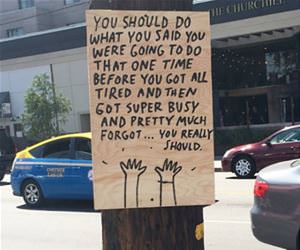 THE CHURCHILL
YOU SHOULD DO
WHAT YOU SAID YOU
WERE GOING TO DO
THAT ONE TIME
BEFORE YOU GOT ALL
TIRED AND THEN
GOT SUPER BUSY
AND PRETTY MUCH
FORGOT... YOU REALLY
SHOULD.